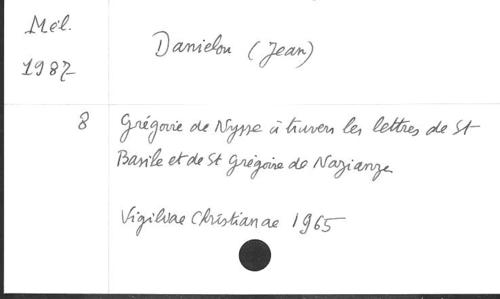 Mél.
1987
Danielou (Jean)
8
Grégoire de Nysse à travers les lettres de St
Basile et de St Grégoire de Nazianze
Vigiliae Christianae 1965